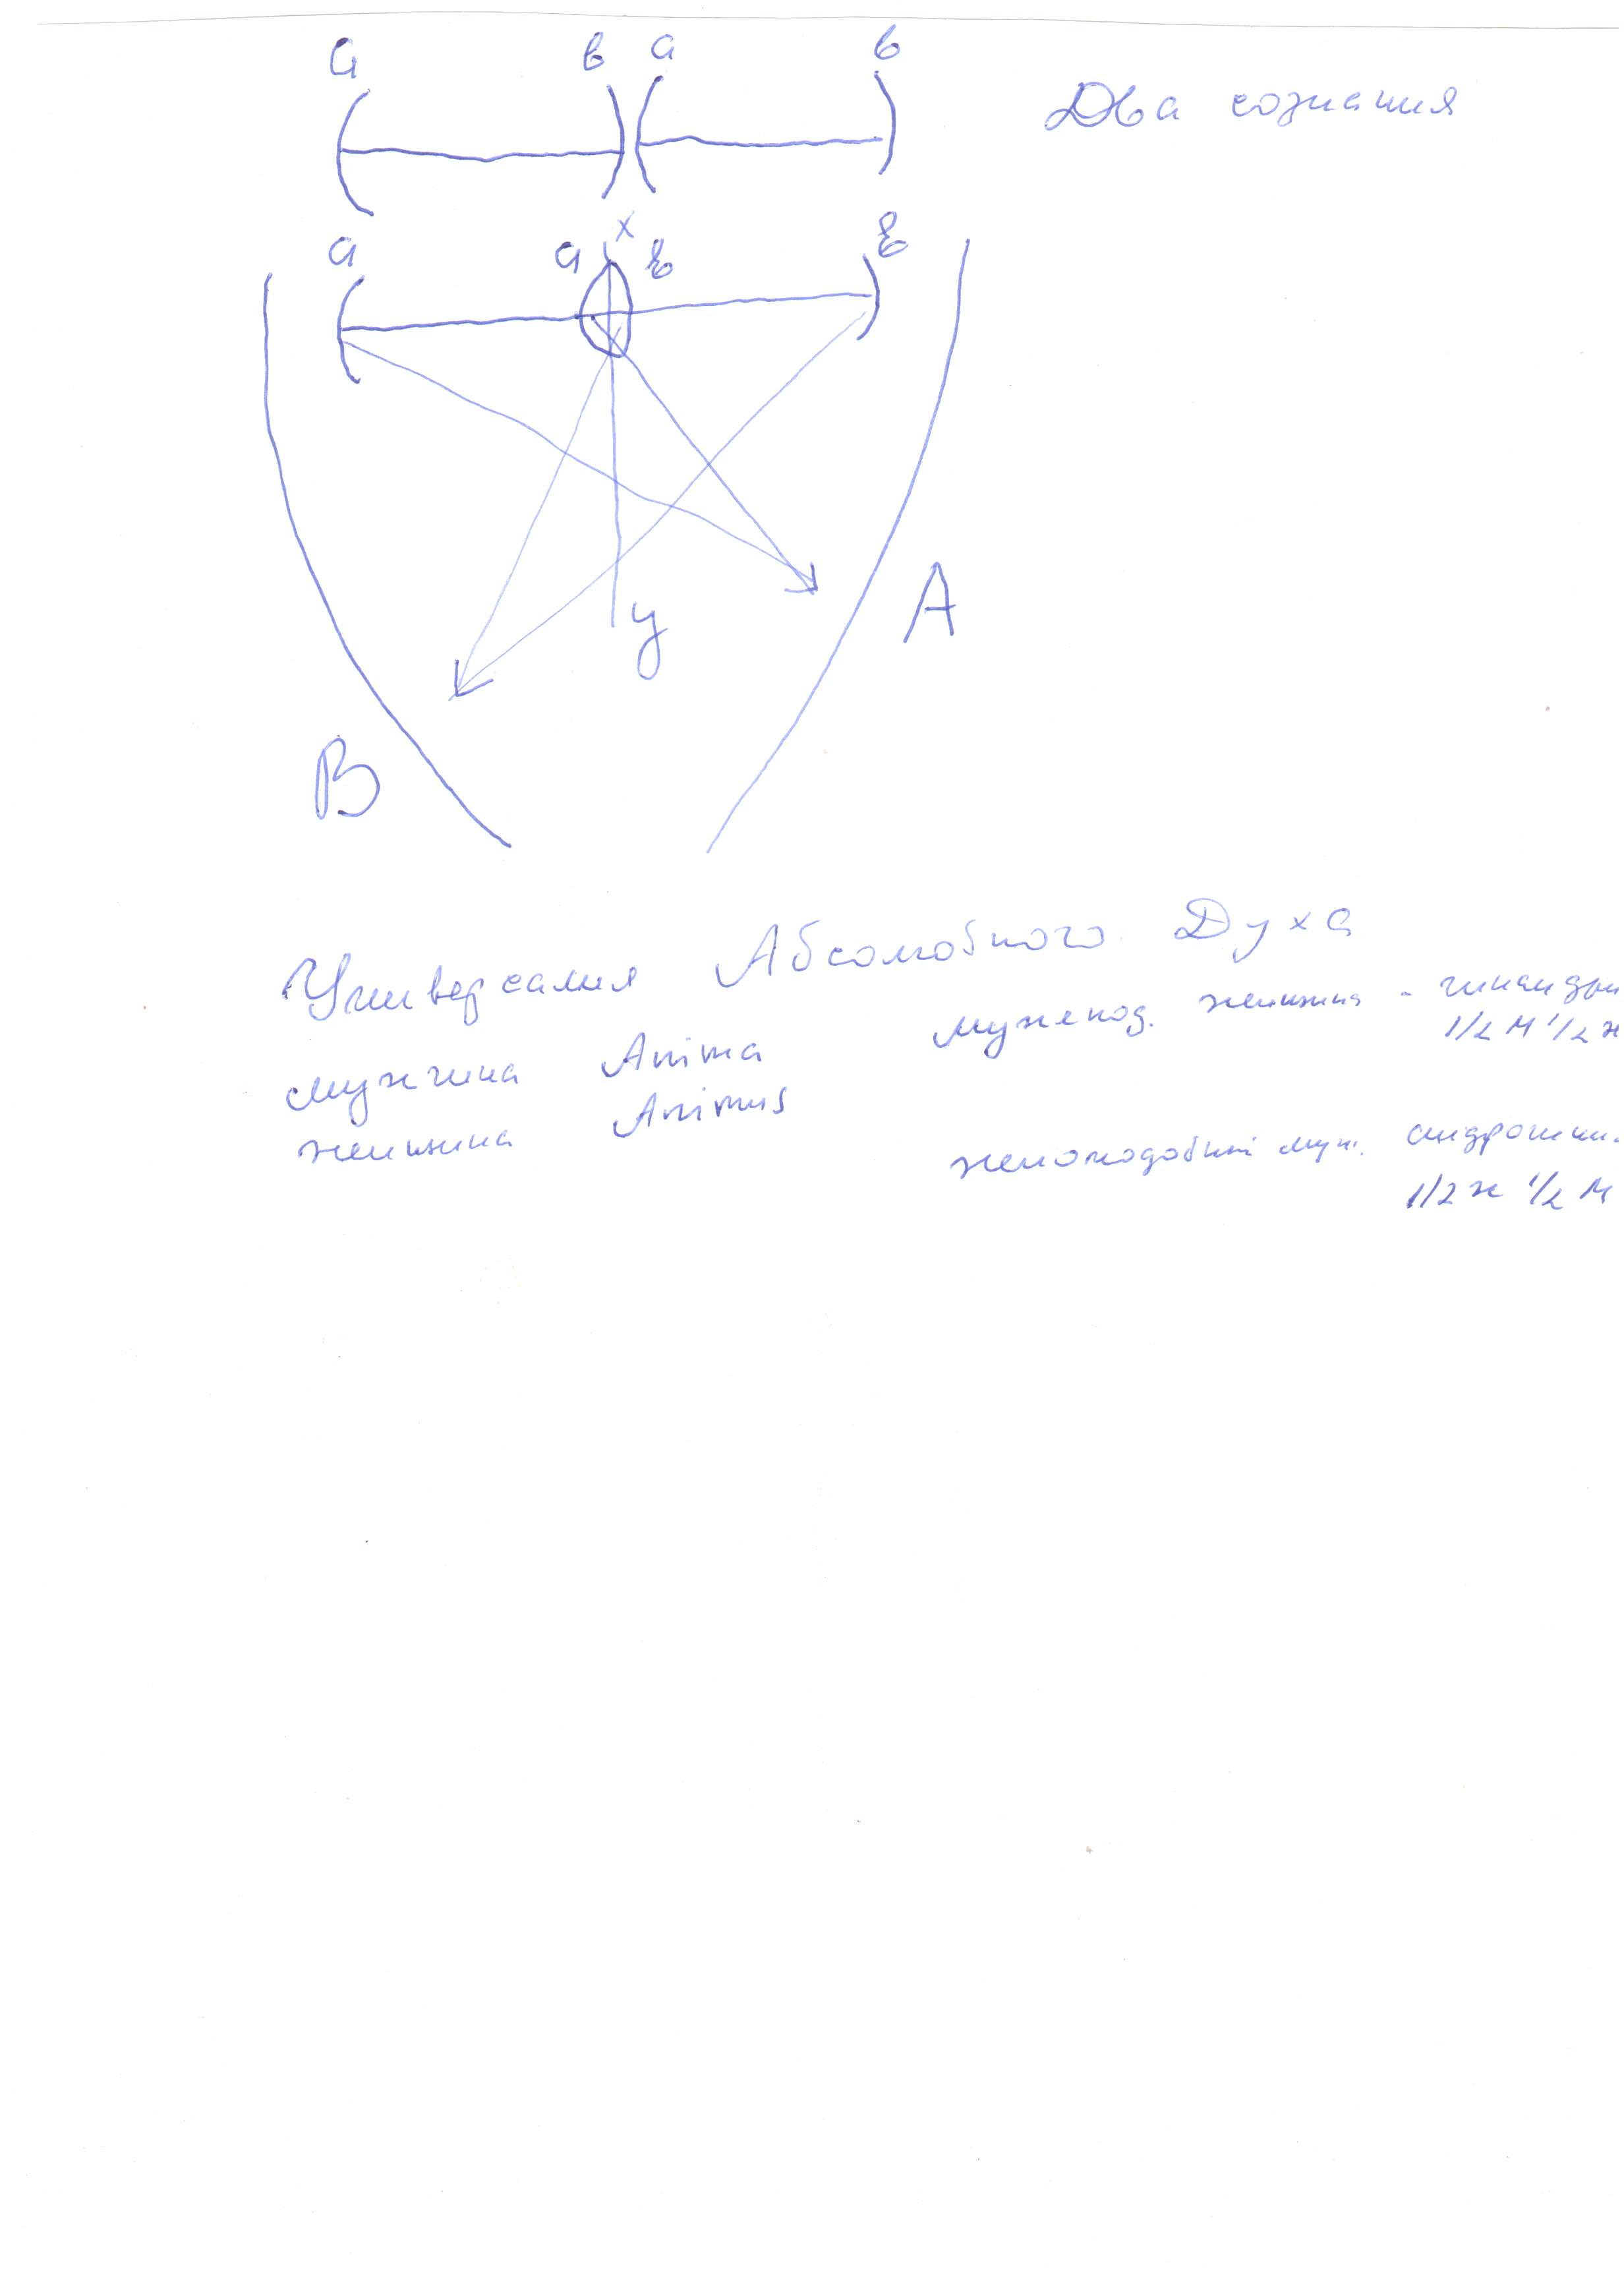 а в а в
Два сознания
х
а а в в
у
А
В
Универсалия Абсолютного Духа
мужепод. женщина - гинандри
1/2 М 1/2 ж
мужчина Anima
женщина Animus
женоподобный муж. андрогин.
1/2 ж 1/2 М